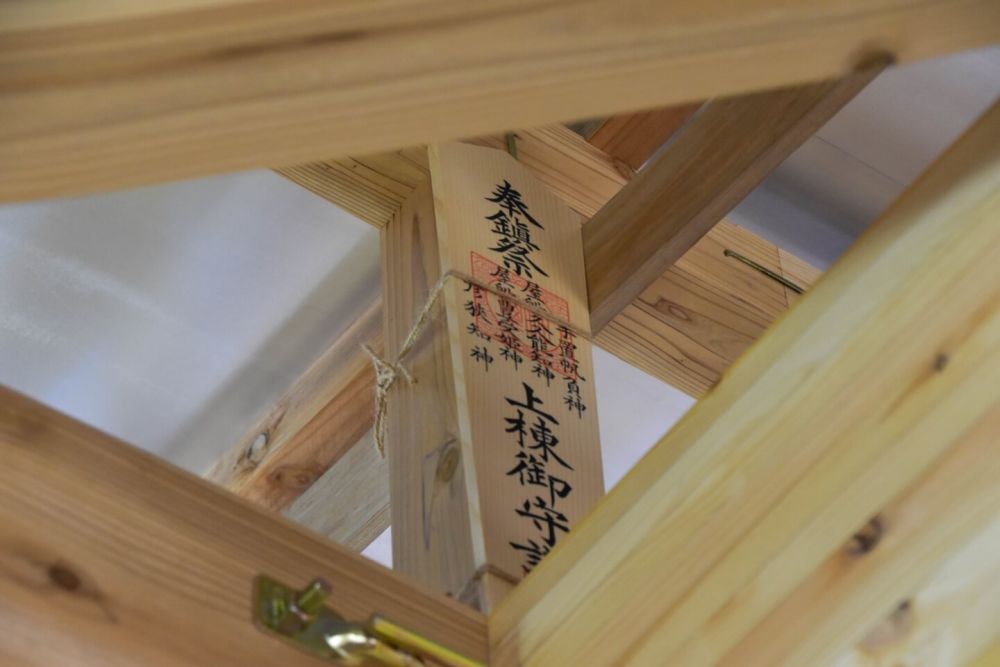 奉鎮祭
手置帆負神
屋船久能知神
屋船豊受姫神
彦狭知神
上棟御守